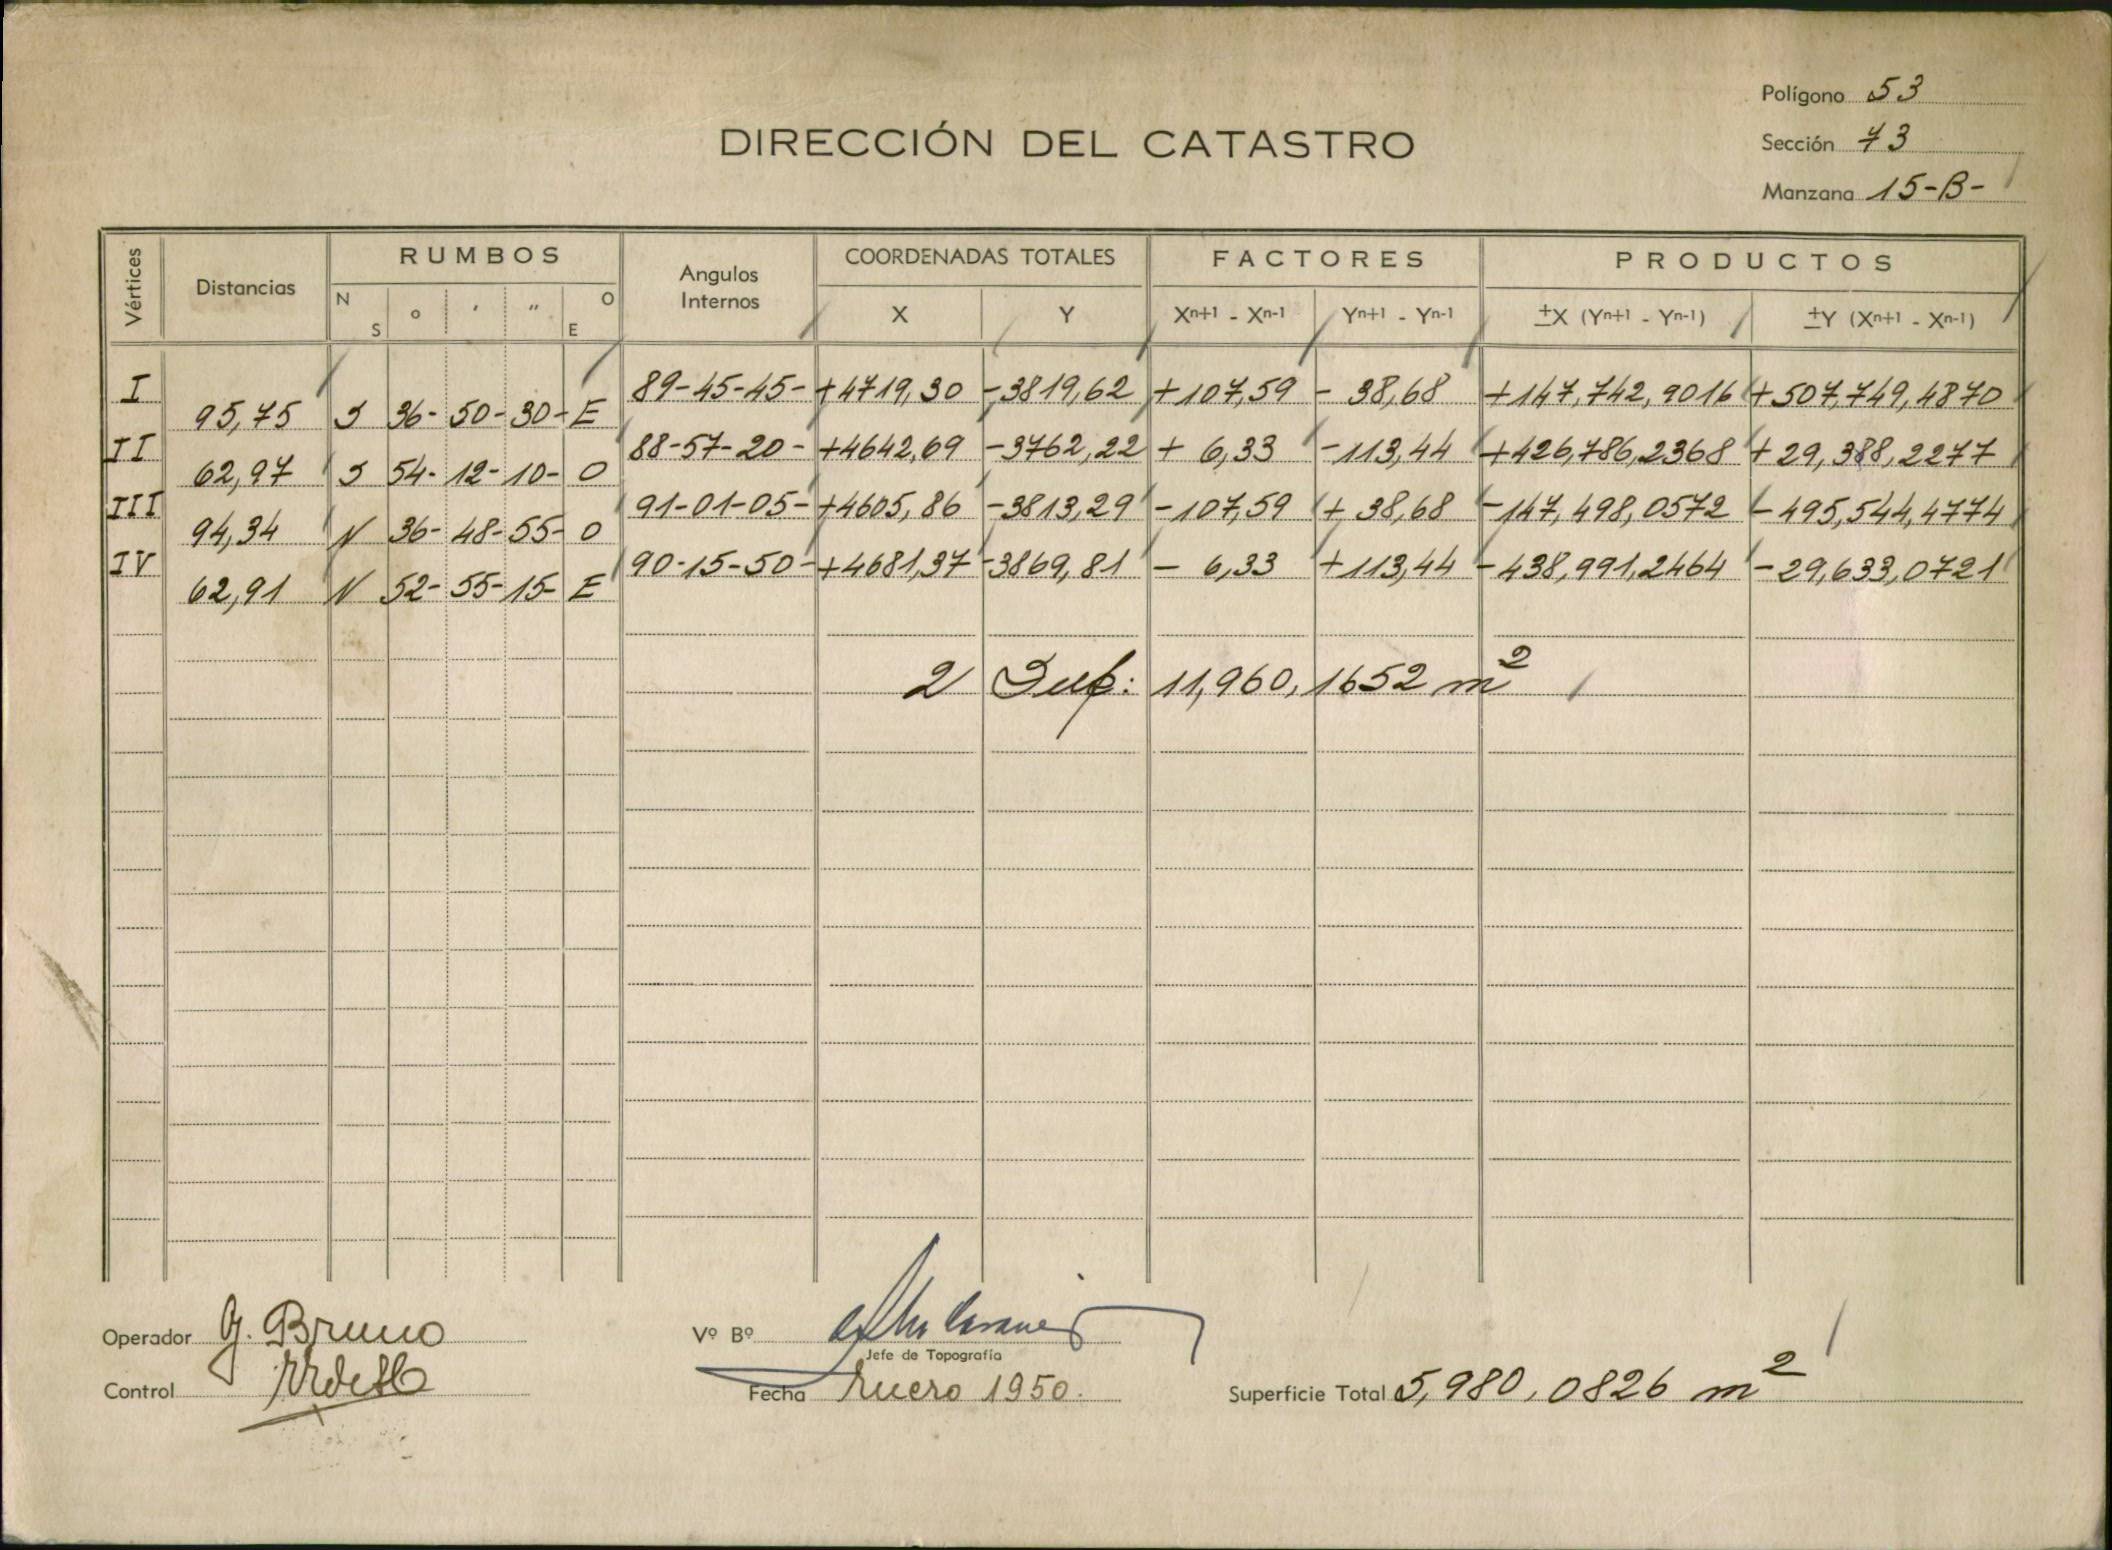 Polígono 53
DIRECCIÓN DEL CATASTRO
Sección 73
Manzana 15-B-
Vértices Distancias RUMBOS Angulos Internos COORDENADAS TOTALES FACTORES PRODUCTOS
N S o ' " O E X Y Xn+1 - Xn-1 Yn+1 - Yn-1 ±X (Yn+1 - Yn-1) ±Y (Xn+1 - Xn-1)
I 89-45-45- +4719,30 -3819,62 +107,59 - 38,68 +147,742,9016 +507,749,4870
95,75 S 36- 50- 30- E
II 88-57-20- +4642,69 -3762,22 + 6,33 -113,44 +426,786,2368 +29,388,2277
62,97 S 54- 12- 10- O
III 91-01-05- +4605,86 -3813,29 -107,59 + 38,68 -147,498,0572 -495,544,4774
94,34 N 36- 48- 55- O
IV 90-15-50- +4681,37 -3869,81 - 6,33 +113,44 -438,991,2464 -29,633,0721
62,91 N 52- 55- 15- E
2 Sup: 11,960,1652 m2
Operador G. Bruno
Vº Bº
Jefe de Topografía
Control
Fecha Enero 1950.
Superficie Total 5,980,0826 m2